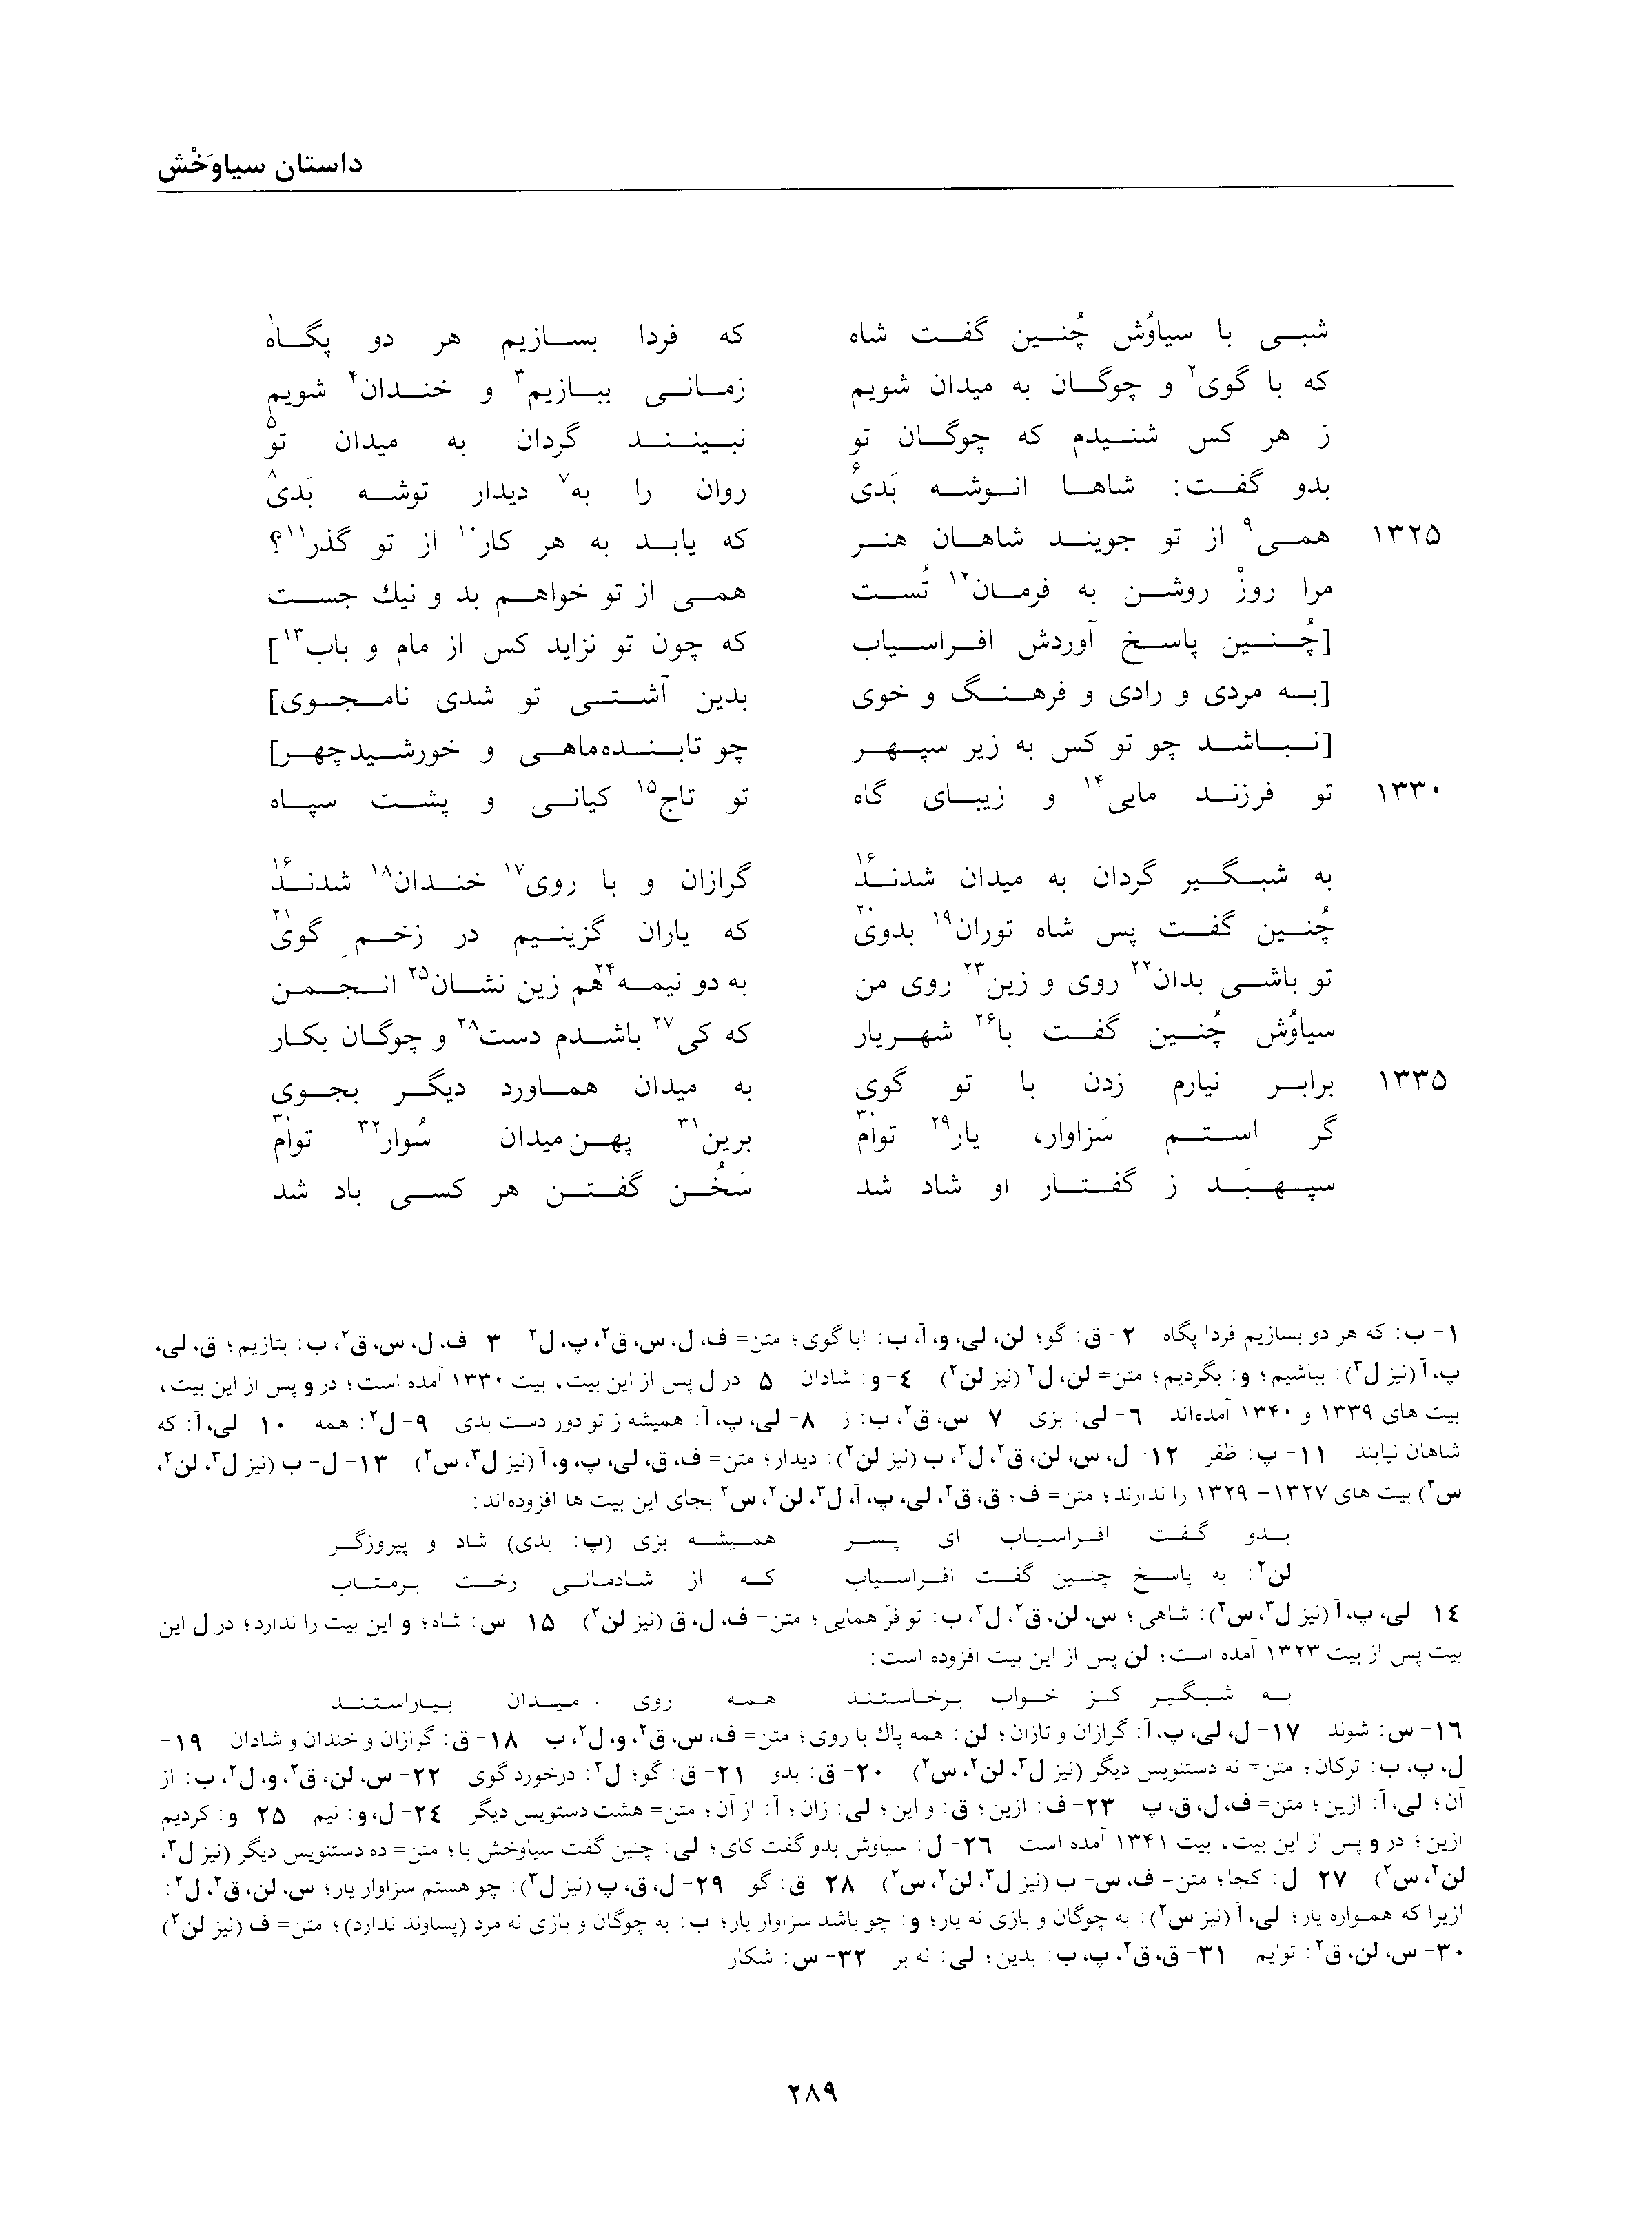 داستان سیاوَخْش
شبی با سیاوُش چُنین گفت شاه که فردا بسازیم هر دو پگاه۱
که با گوی۲ و چوگان به میدان شویم زمانی ببازیم۳ و خندان۴ شویم
ز هر کس شنیدم که چوگان تو نبینند گردان به میدان تو۵
بدو گفت: شاها انوشه بَدی۶ روان را به۷ دیدار توشه بَدی۸
۱۳۲۵ همی۹ از تو جویند شاهان هنر که یابد به هر کار۱۰ از تو گذر۱۱؟
مرا روزْ روشن به فرمان۱۲ تُست همی از تو خواهم بد و نیك جست
[چُنین پاسخ آوردش افراسیاب که چون تو نزاید کس از مام و باب۱۳]
[به مردی و رادی و فرهنگ و خوی بدین آشتی تو شدی نامجوی]
[نباشد چو تو کس به زیر سپهر چو تابنده‌ماهی و خورشیدچهر]
۱۳۳۰ تو فرزند مایی۱۴ و زیبای گاه تو تاج۱۵ کیانی و پشت سپاه
به شبگیر گردان به میدان شدند۱۶ گرازان و با روی۱۷ خندان۱۸ شدند۱۶
چُنین گفت پس شاه توران۱۹ بدوی۲۰ که یاران گزینیم در زخمِ گوی۲۱
تو باشی بدان۲۲ روی و زین۲۳ روی من به دو نیمه۲۴ هم زین نشان۲۵ انجمن
سیاوُش چُنین گفت با۲۶ شهریار که کی۲۷ باشدم دست۲۸ و چوگان بکار
۱۳۳۵ برابر نیارم زدن با تو گوی به میدان هماورد دیگر بجوی
گر استم سَزاوار، یار۲۹ توام۳۰ برین۳۱ پهن‌میدان سُوار۳۲ توام۳۰
سپهبَد ز گفتار او شاد شد سَخُن گفتن هر کسی باد شد
۱- ب: که هر دو بسازیم فردا پگاه ۲- ق: گو؛ لن، لی، و، آ، ب: ابا گوی؛ متن= ف، ل، س، ق۲، پ، ل۲ ۳- ف، ل، س، ق۲، ب: بتازیم؛ ق، لی،
پ، آ (نیز ل۳): بباشیم؛ و: بگردیم؛ متن= لن، ل۲ (نیز لن۲) ٤- و: شادان ۵- در ل پس از این بیت، بیت ۱۳۳۰ آمده است؛ در و پس از این بیت،
بیت های ۱۳۳۹ و ۱۳۴۰ آمده‌اند ٦- لی: بزی ۷- س، ق۲، ب: ز ۸- لی، پ، آ: همیشه ز تو دور دست بدی ۹- ل۲: همه ۱۰- لی، آ: که
شاهان نیابند ۱۱- پ: ظفر ۱۲- ل، س، لن، ق۲، ل۲، ب (نیز لن۲): دیدار؛ متن= ف، ق، لی، پ، و، آ (نیز ل۳، س۲) ۱۳- ل- ب (نیز ل۳، لن۲،
س۲) بیت های ۱۳۲۷- ۱۳۲۹ را ندارند؛ متن= ف؛ ق، ق۲، لی، پ، آ، ل۳، لن۲، س۲ بجای این بیت ها افزوده‌اند:
بدو گفت افراسیاب ای پسر همیشه بزی (پ: بدی) شاد و پیروزگر
لن۲: به پاسخ چنین گفت افراسیاب که از شادمانی رخت برمتاب
۱٤- لی، پ، آ (نیز ل۳، س۲): شاهی؛ س، لن، ق۲، ل۲، ب: تو فرّ همایی؛ متن= ف، ل، ق (نیز لن۲) ۱۵- س: شاه؛ و این بیت را ندارد؛ در ل این
بیت پس از بیت ۱۳۲۳ آمده است؛ لن پس از این بیت افزوده است:
به شبگیر کز خواب برخاستند همه روی میدان بیاراستند
۱٦- س: شوند ۱۷- ل، لی، پ، آ: گرازان و تازان؛ لن: همه پاك با روی؛ متن= ف، س، ق۲، و، ل۲، ب ۱۸- ق: گرازان و خندان و شادان ۱۹-
ل، پ، ب: ترکان؛ متن= نه دستنویس دیگر (نیز ل۳، لن۲، س۲) ۲۰- ق: بدو ۲۱- ق: گو؛ ل۲: درخورد گوی ۲۲- س، لن، ق۲، و، ل۲، ب: از
آن؛ لی، آ: ازین؛ متن= ف، ل، ق، پ ۲۳- ف: ازین؛ ق: و این؛ لی: زان؛ آ: از آن؛ متن= هشت دستویس دیگر ۲٤- ل، و: نیم ۲۵- و: کردیم
ازین؛ در و پس از این بیت، بیت ۱۳۴۱ آمده است ۲٦- ل: سیاوش بدو گفت کای؛ لی: چنین گفت سیاوخش با؛ متن= ده دستنویس دیگر (نیز ل۳،
لن۲، س۲) ۲۷- ل: کجا؛ متن= ف، س- ب (نیز ل۳، لن۲، س۲) ۲۸- ق: گو ۲۹- ل، ق، پ (نیز ل۳): چو هستم سزاوار یار؛ س، لن، ق۲، ل۲:
ازیرا که همواره یار؛ لی، آ (نیز س۲): به چوگان و بازی نه یار؛ و: چو باشد سزاوار یار؛ ب: به چوگان و بازی نه مرد (پساوند ندارد)؛ متن= ف (نیز لن۲)
۳۰- س، لن، ق۲: توایم ۳۱- ق، ق۲، پ، ب: بدین؛ لی: نه بر ۳۲- س: شکار
۲۸۹